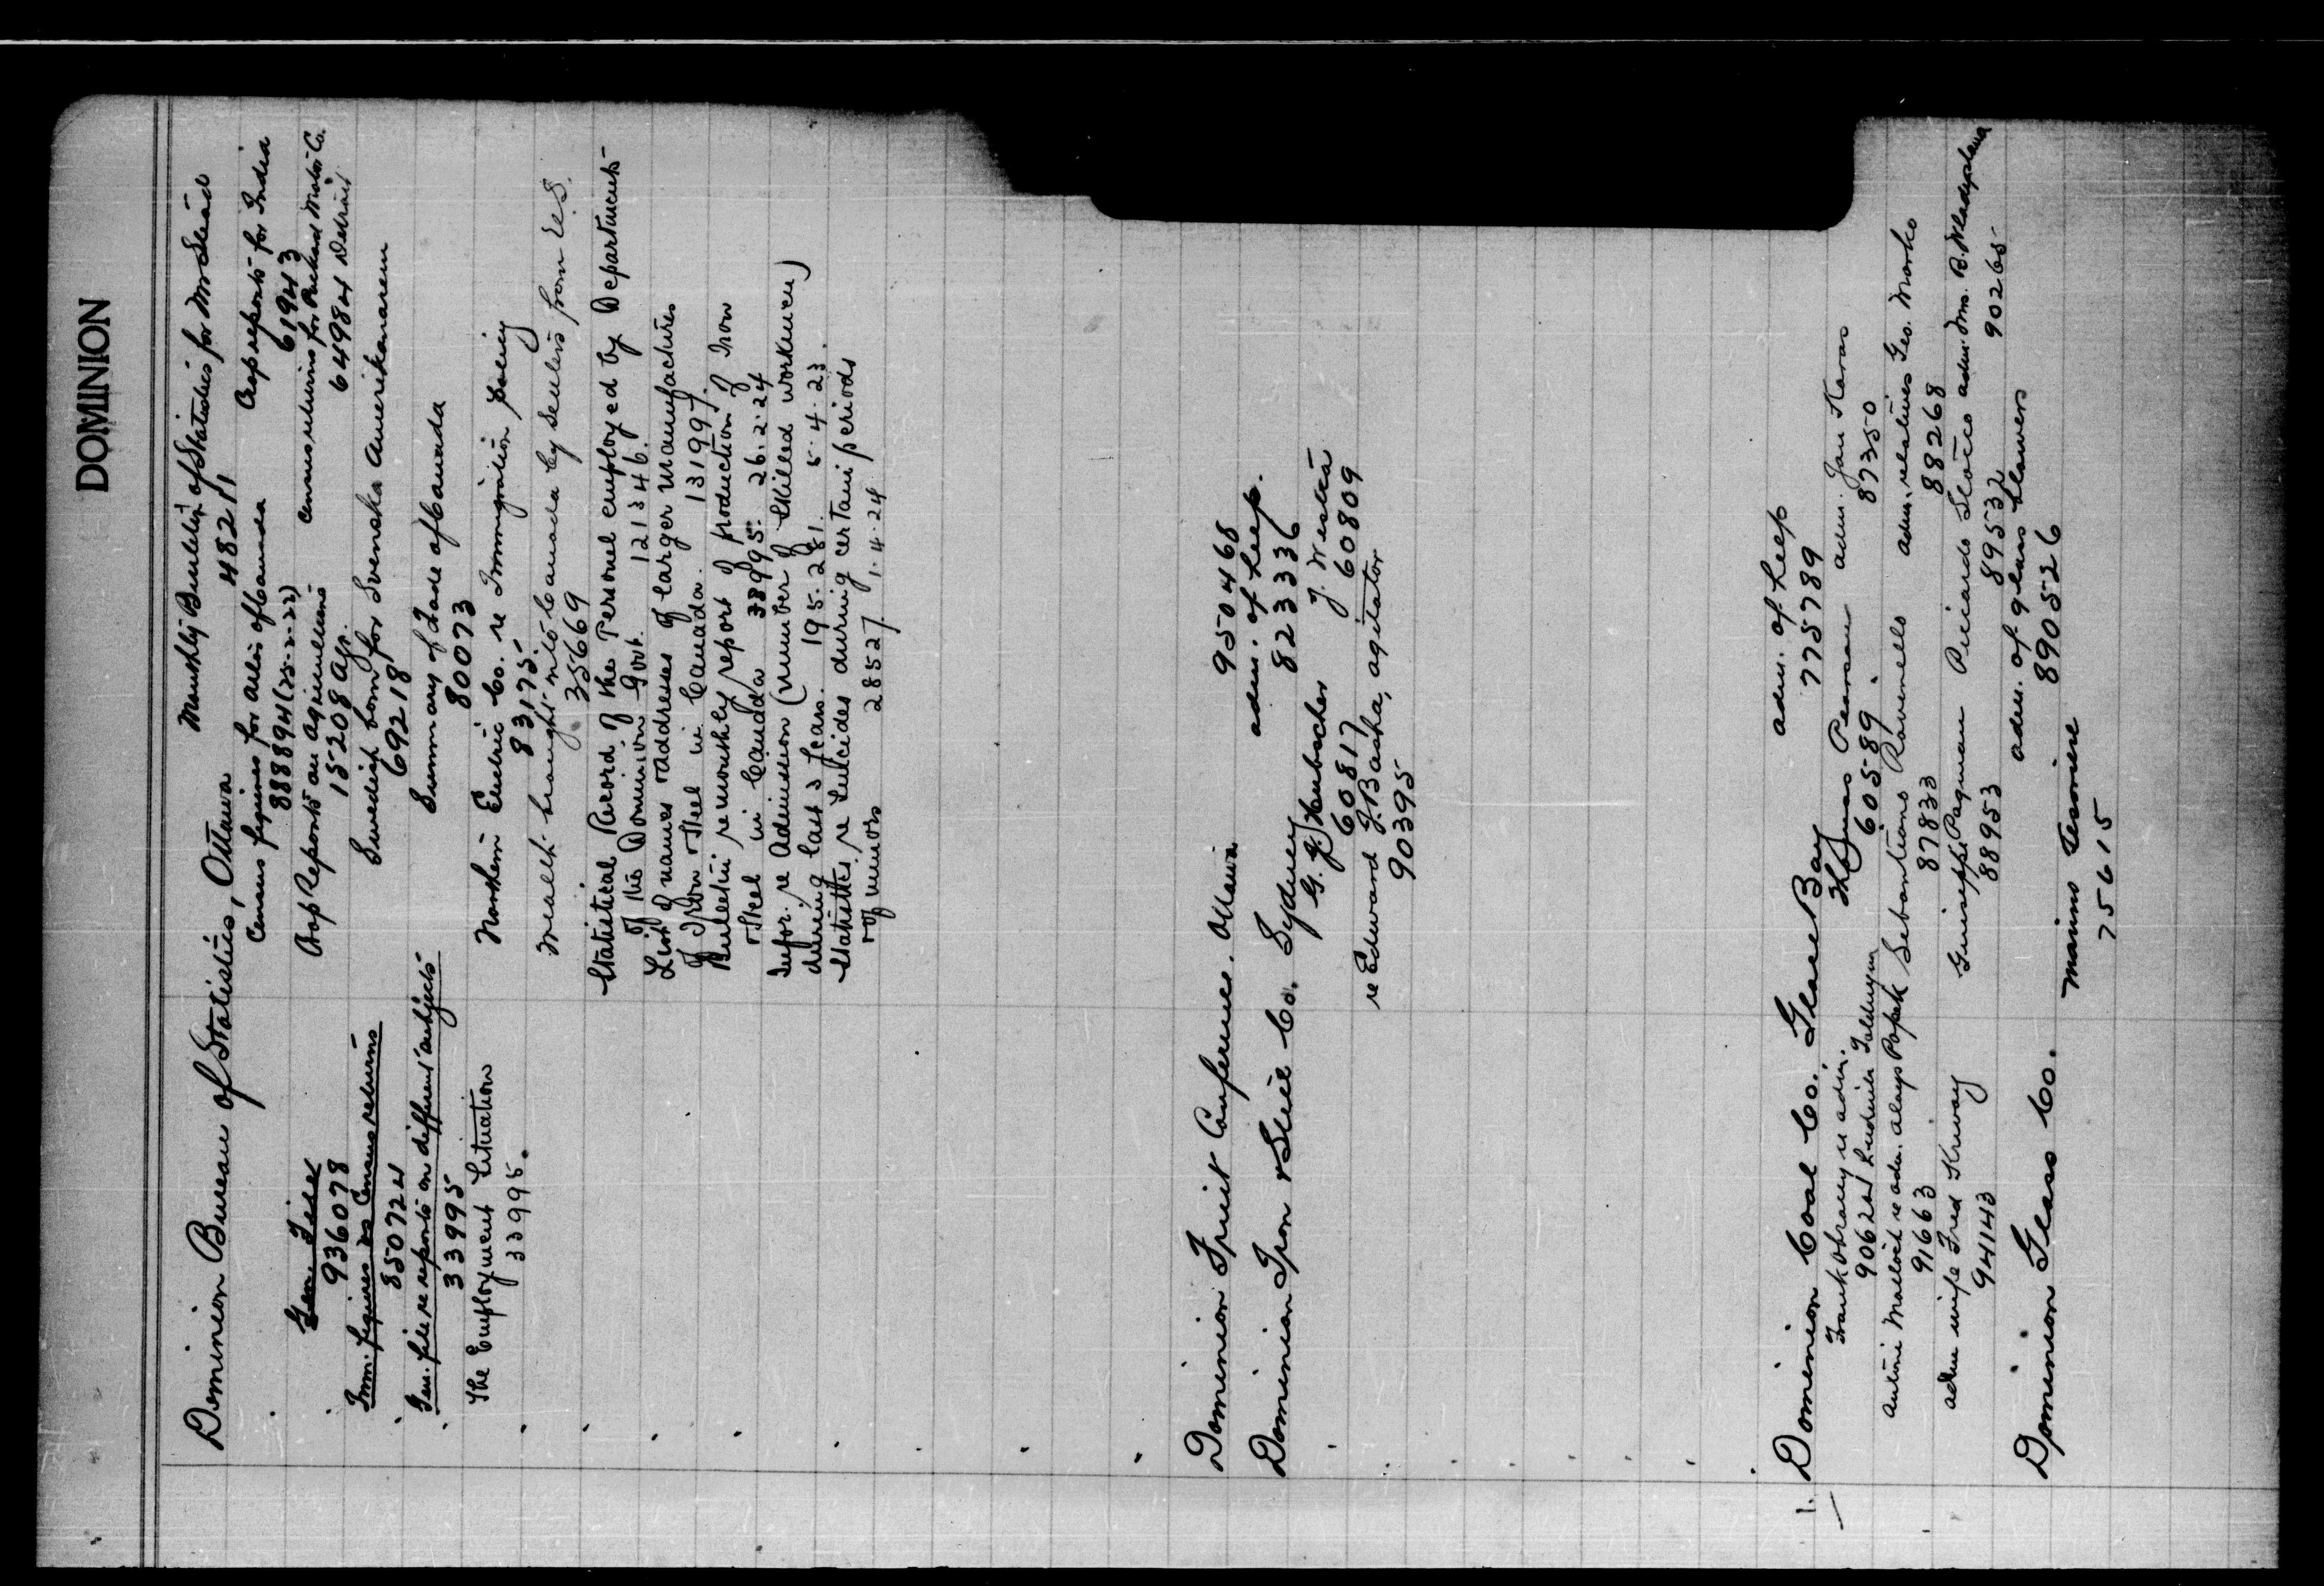 DOMINION
Dominion Bureau of Statistics, Ottawa
Monthly Bulletin of Statistics for Mr
48211
Census figures for cities of Canada
888894 (25-2-22)
Crop reports for India
61943
Gen. File
936078
Crop Reports on Agricultural
15208 Agr.
Census returns for Packard Motor Co.
64984 Detroit
Imm. figures Census returns
850724
Swedish born for Svenska Amerikanaren
69218
Gen. file re reports on different subjects
33995
Summary of Trade of Canada
80073
The Employment Situation
33995.
Northern Electric Co. re Immigration policy
83175.
Wealth brought into Canada by settlers from U.S.
35669
Statistical Record of the Personel employed by Departments
of the Dominion Govt. 121346.
List of names & addresses of larger manufactures
of Iron & Steel in Canada. 13199.
Bulletin re monthly report of production of Iron
& Steel in Canada 38995. 26.2.24
Infor. re Admission (number of skilled workmen)
during last 3 years. 195.281. 5.4.23.
Statistics re Suicides during certain periods
of minors 28527 1.4.24
Dominion Fruit Conference. Ottawa
950468
Dominion Iron & Steel Co. Sydney
adm. of help.
823336
G. J. Hubscher
60817
J. Westra
60809
re Edward J. Basha, agitator
90395
1. Dominion Coal Co. Glace Bay
adm. of help
775789
Frank re adm.
90624
Thomas Pearson
60589.
adm. Jan Karas
87350
re adm. Popek
91663
Ravenelle
87833
adm. relatives Geo. Marko
88268
adm wife Fred Krivay
94143
Guiseppe Pagnan
88953
Riccardo Stocco
89532
adm. Mrs. B.
90265
Dominion Glass Co.
adm. of glass blowers
8905 26
75615